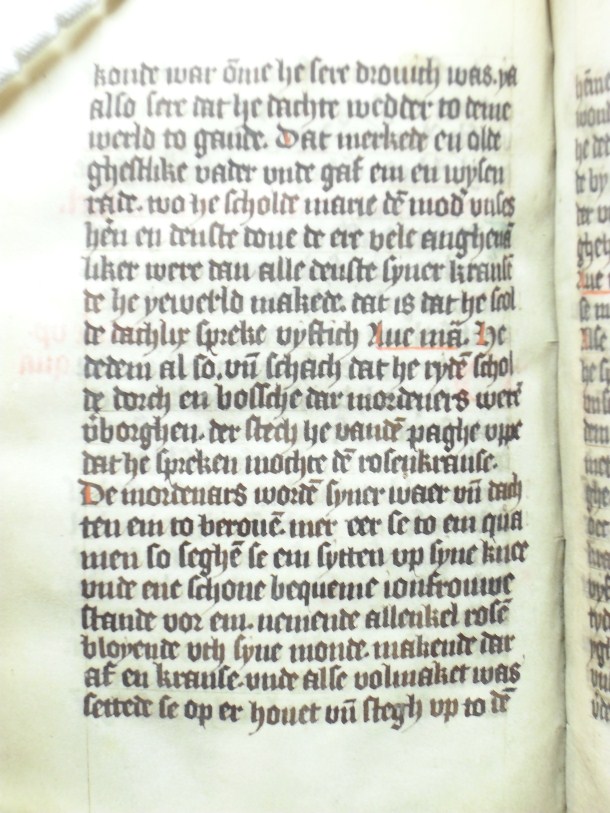 konde war ōme he sere drouich was. ya
also sere dat he dachte wedder to deme
werld to gande. Dat merkede en olde
ghestlike vader vnde gaf em en wysen
rade. wo he scholde marie dē mod' vnses
hēn en denste done de er vele anghenā
liker were dan alle denste syner kranse
de he yewerld makede. dat is dat he scol
de dachlix spreke vyftich Aue mā. He
dedem al so. vn̄ schach dat he rydē schol
de dorch en bossche dar mordeners werē
v̄borghen. der stech he vandē paghe vppe
dat he spreken mochte dē rosenkranse.
De mordenars wordē syner waer vn̄ dach
ten em to berouē. mer eer se to em qua
men so seghē se em sytten vp syne knee
vnde ene schone bequeme ionfrouwe
stande vor em. nemende allenkel rosē
bloyende vth syne monde. makende dar
af en kranse. vnde alse volmaket was
settede se op er houet vn̄ stegh vp to dē